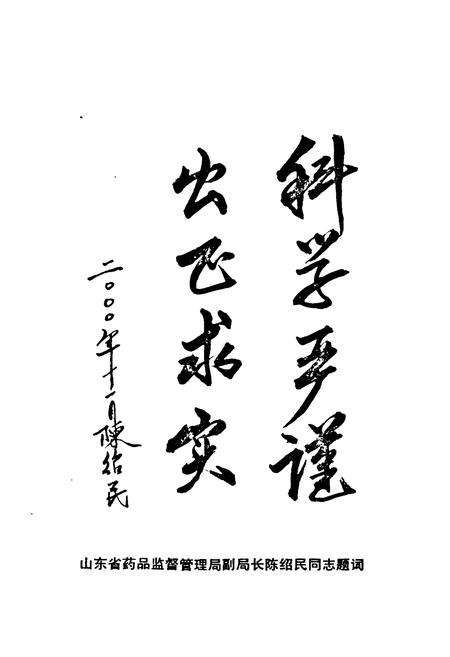 科学严谨
公正求实
二〇〇〇年十一月陳绍民
山东省药品监督管理局副局长陈绍民同志题词